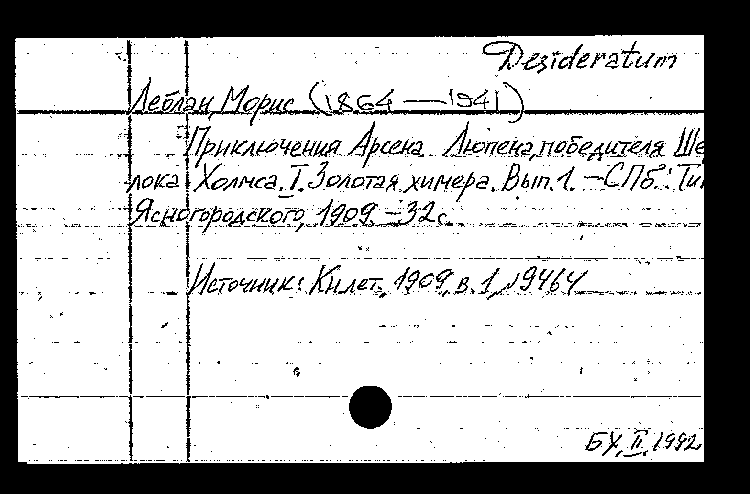 Desideratum
Леблан, Морис (1864 — 1941)
Приключения Арсена Люпена, победителя Ше
лока Холмса. I. Золотая химера. Вып. 1. — СПб.: Ти
Ясногородского, 1909. — 32 с.
Источник: Кн. лет., 1909, в. 1, 19464
БХ, II, 1992